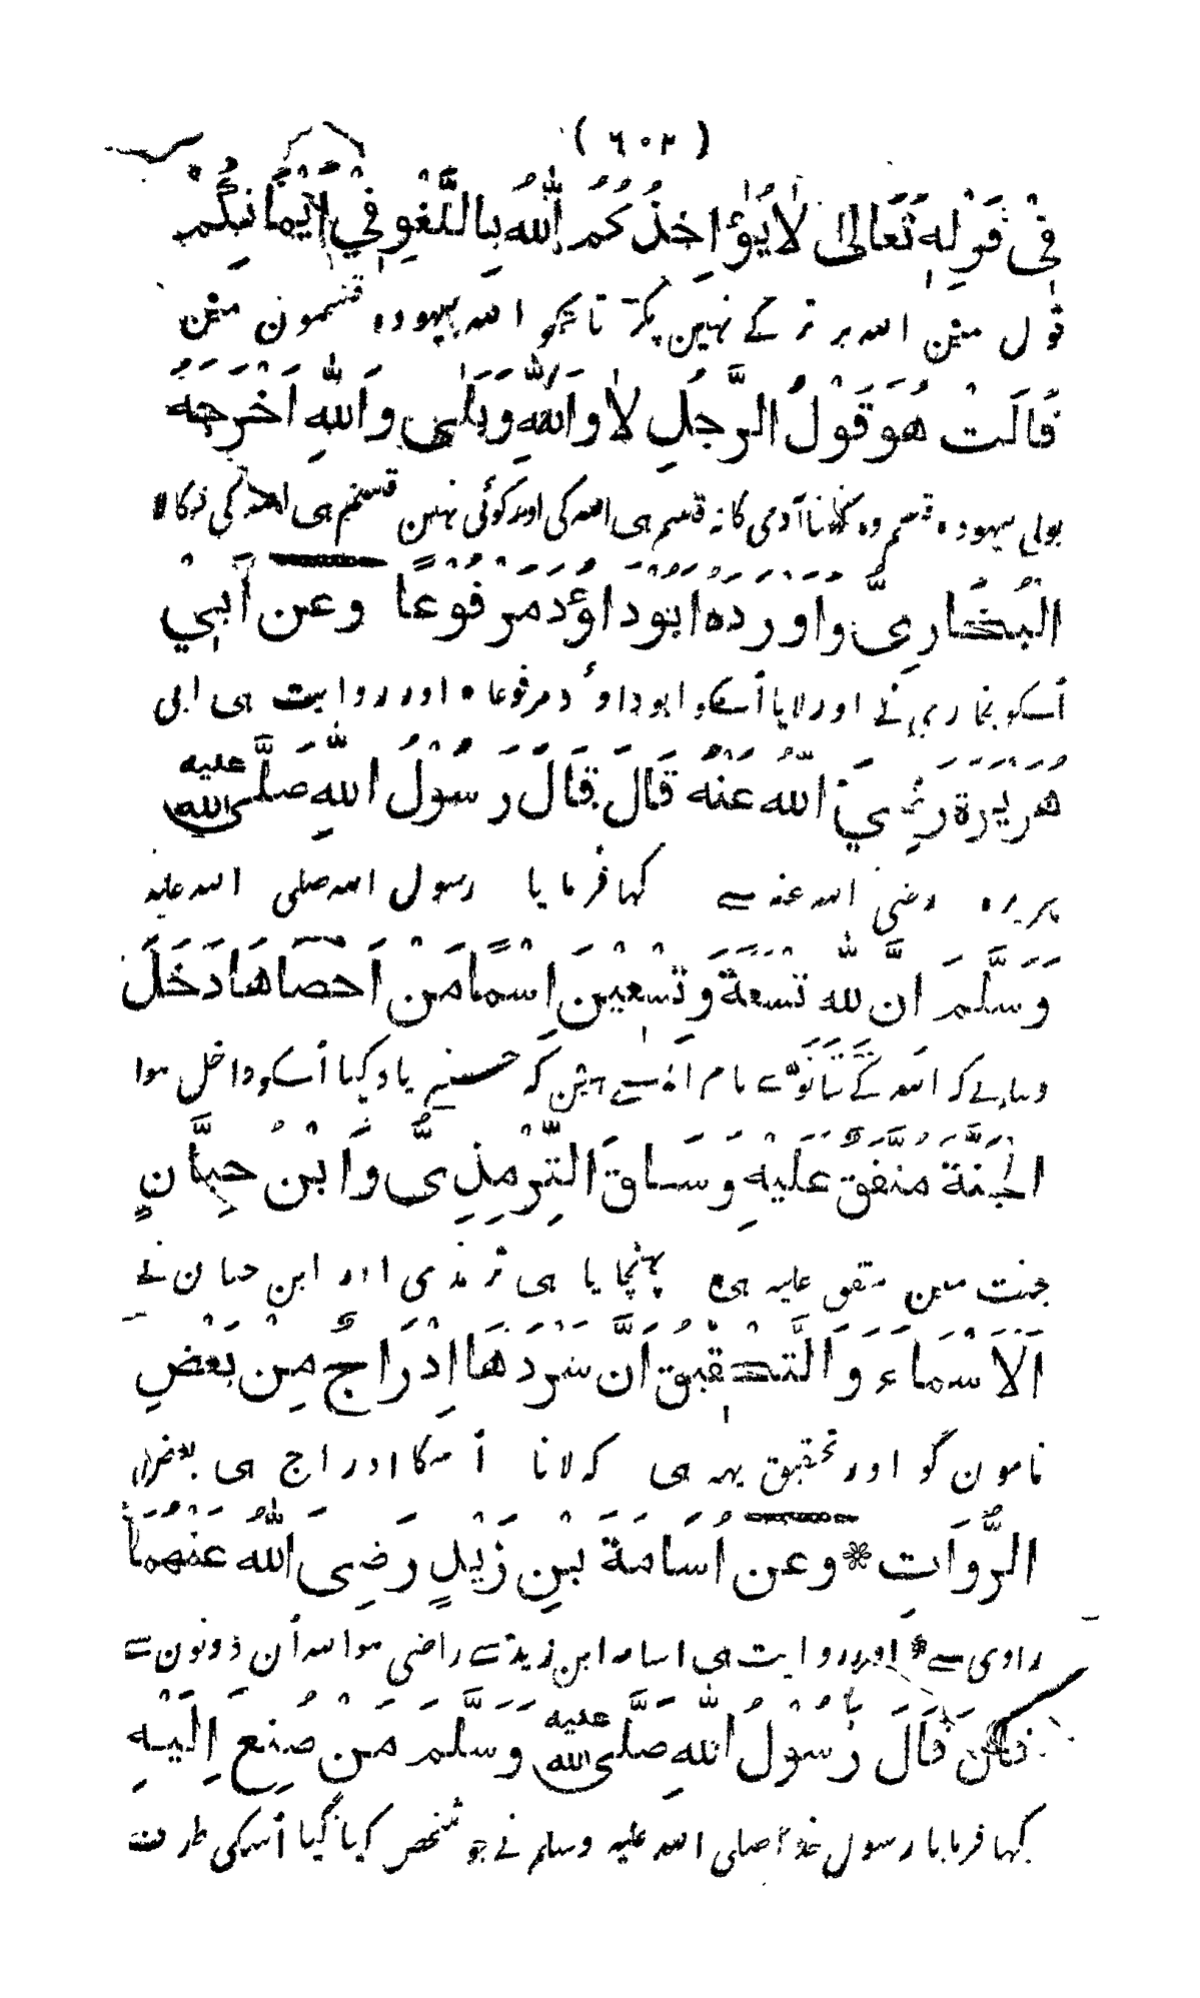 (٦٠٢)
فِیْ قَوْلِهٖ تَعَالیٰ لَا یُؤَاخِذُكُمُ اللّٰهُ بِاللَّغْوِ فِیْ اَیْمَانِكُمْ
قول مین الله برتر کے نہین پکڑتا تمکو الله بیہوده قسمون مین
قَالَتْ هُوَ قَوْلُ الرَّجُلِ لَا وَاللّٰهِ وَبَلٰی وَاللّٰهِ اَخْرَجَهُ
بولی بیہوده قسم وه کہنا آدمی کا نہ قسم ہی الله کی اور کوئی نہین قسم ہی الله کی نکالا
الْبُخَارِیُّ وَاَوْرَدَهُ اَبُوْدَاوُدَ مَرْفُوْعًا وَعَنْ اَبِیْ
اُسکو بخاری نے اور لایا اُسکو ابوداوٗد مرفوعا ٭ اور روایت ہی ابی
هُرَیْرَةَ رَضِیَ اللّٰهُ عَنْهُ قَالَ قَالَ رَسُوْلُ اللّٰهِ صَلَّی اللّٰه علیه
ہریره رضی الله عنہ سے کہا فرمایا رسول الله صلی الله علیہ
وَسَلَّمَ اَنَّ لِلّٰهِ تِسْعَةً وَتِسْعِیْنَ اِسْمًا مَنْ اَحْصَاهَا دَخَلَ
وسلم نے کہ الله کے ننانوے نام ایسے ہین کہ جسنے یاد کیا اُسکو داخل ہوا
الْجَنَّةَ مُتَّفَقٌ عَلَیْهِ وَسَاقَ التِّرْمِذِیُّ وَابْنُ حِبَّانٍ
جنت مین متفق علیہ ہی ٭ پہنچایا ہی ترمذی اور ابن حبان نے
الْاَسْمَاءَ وَالتَّحْقِیْقُ اَنَّ سَرْدَهَا اِدْرَاجٌ مِنْ بَعْضِ
نامون کو اور تحقیق یہہ ہی کہ لانا اُسکا ادراج ہی بعض
الرُّوَاتِ * وَعَنْ اُسَامَةَ بْنِ زَیْدٍ رَضِیَ اللّٰهُ عَنْهُمَا
راوی سے * اور روایت ہی اسامہ ابن زید سے راضی ہو الله اُن دونون سے
قَالَ قَالَ رَسُوْلُ اللّٰهِ صَلَّی اللّٰه علیه وَسَلَّمَ مَنْ صُنِعَ اِلَیْهِ
کہا فرمایا رسول خدا صلی الله علیہ وسلم نے جو شخص کہ کیا گیا اُسکی طرف